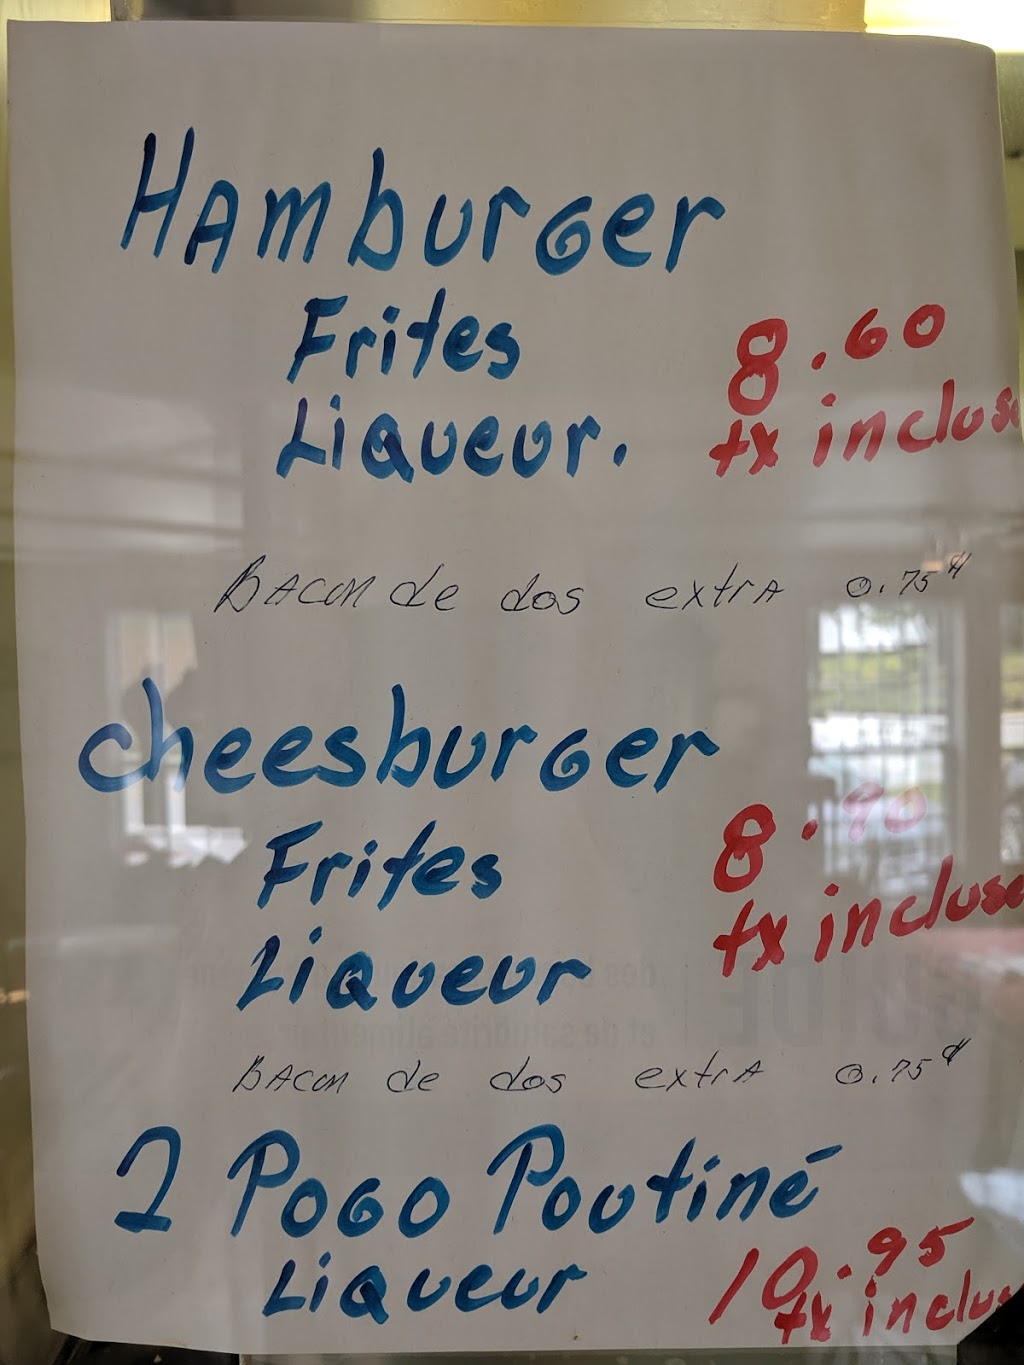 Hamburger
Frites 8.60
Liqueur. tx incluse
Bacon de dos extra 0.75¢
cheesburger
Frites 8.90
Liqueur tx incluse
Bacon de dos extra 0.75¢
2 Pogo Poutiné
Liqueur 10.95
tx inclus